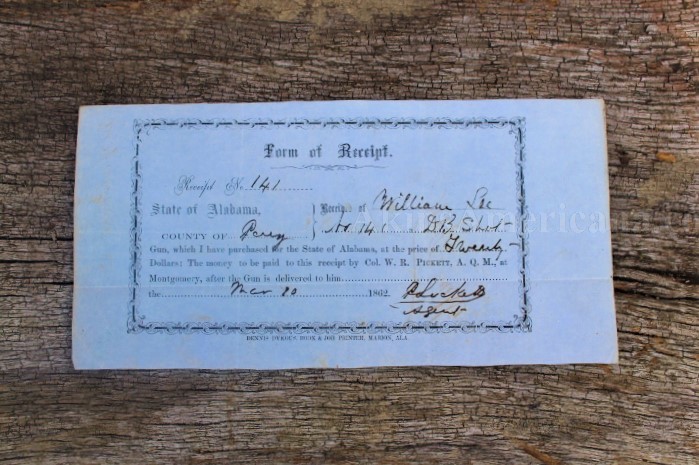 Form of Receipt.
Receipt No. 141
State of Alabama, } Received of William Lee
COUNTY OF Perry } No 141 Dbl Shot
Gun, which I have purchased for the State of Alabama, at the price of Twenty
Dollars: The money to be paid to this receipt by Col. W. R. PICKETT, A. Q. M., at
Montgomery, after the Gun is delivered to him
the Mar 10 1862
Agent
DENNIS DYKOUS, BOOK & JOB PRINTER, MARION, ALA.